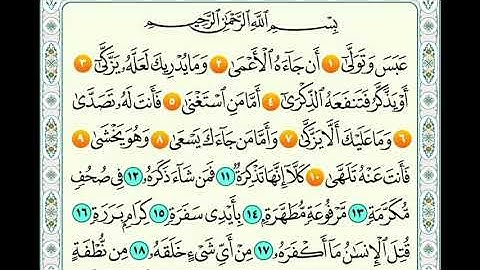 بِسْمِ ٱللَّهِ ٱلرَّحْمَٰنِ ٱلرَّحِيمِ
عَبَسَ وَتَوَلَّىٰٓ ١ أَن جَآءَهُ ٱلْأَعْمَىٰ ٢ وَمَا يُدْرِيكَ لَعَلَّهُۥ يَزَّكَّىٰٓ ٣
أَوْ يَذَّكَّرُ فَتَنفَعَهُ ٱلذِّكْرَىٰٓ ٤ أَمَّا مَنِ ٱسْتَغْنَىٰ ٥ فَأَنتَ لَهُۥ تَصَدَّىٰ
٦ وَمَا عَلَيْكَ أَلَّا يَزَّكَّىٰ ٧ وَأَمَّا مَن جَآءَكَ يَسْعَىٰ ٨ وَهُوَ يَخْشَىٰ ٩
فَأَنتَ عَنْهُ تَلَهَّىٰ ١٠ كَلَّآ إِنَّهَا تَذْكِرَةٌ ١١ فَمَن شَآءَ ذَكَرَهُۥ ١٢ فِى صُحُفٍ
مُّكَرَّمَةٍ ١٣ مَّرْفُوعَةٍ مُّطَهَّرَةٍۭ ١٤ بِأَيْدِى سَفَرَةٍ ١٥ كِرَامٍۭ بَرَرَةٍ ١٦
قُتِلَ ٱلْإِنسَٰنُ مَآ أَكْفَرَهُۥ ١٧ مِنْ أَىِّ شَىْءٍ خَلَقَهُۥ ١٨ مِن نُّطْفَةٍ